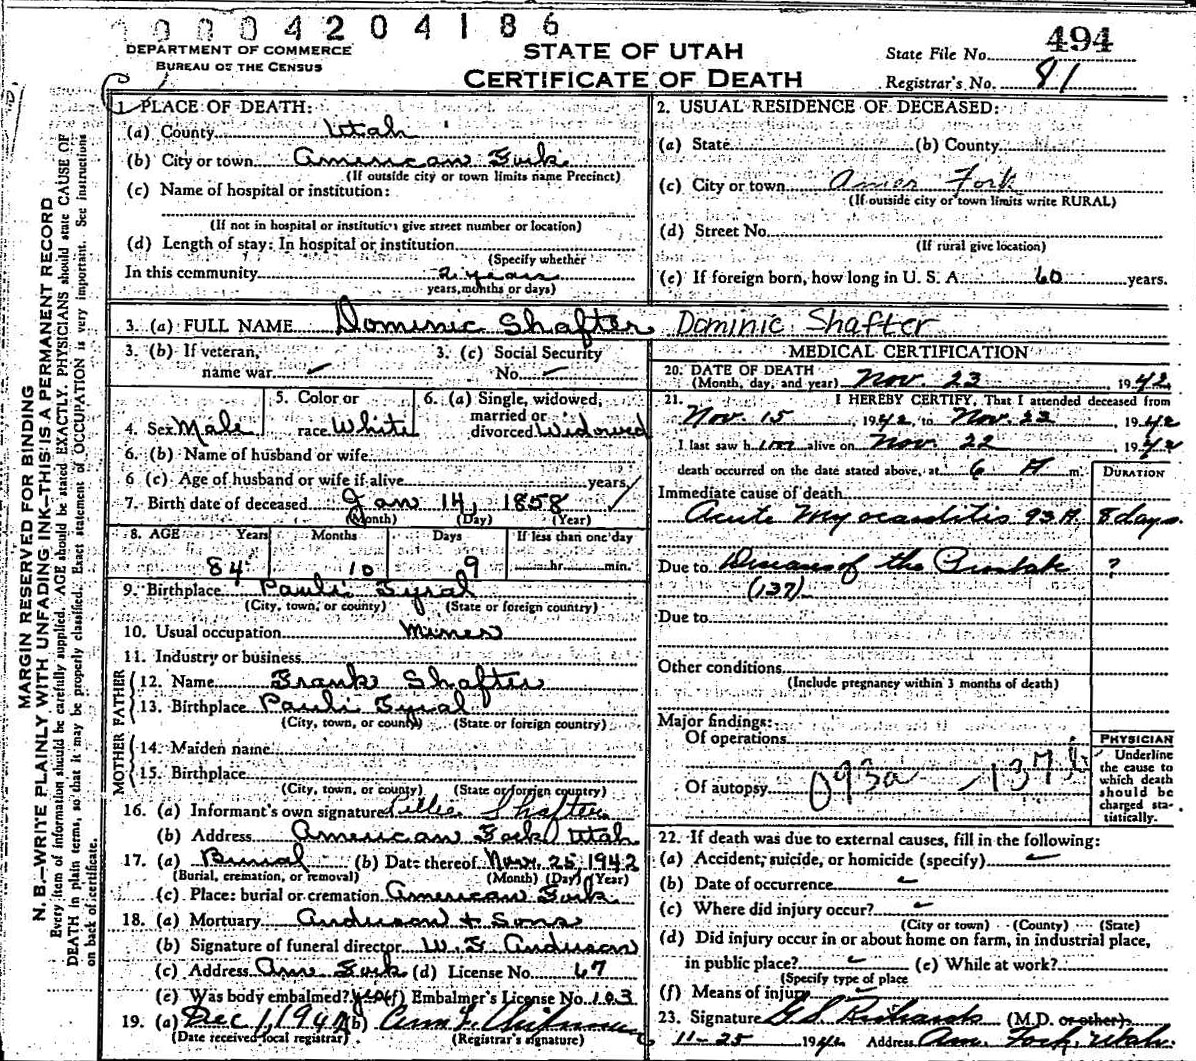 19004204186
DEPARTMENT OF COMMERCE
BUREAU OF THE CENSUS
STATE OF UTAH
CERTIFICATE OF DEATH
State File No. 494
Registrar's No. 81
MARGIN RESERVED FOR BINDING
N. B.—WRITE PLAINLY WITH UNFADING INK—THIS IS A PERMANENT RECORD
Every item of information should be carefully supplied. AGE should be stated EXACTLY. PHYSICIANS should state CAUSE OF
DEATH in plain terms, so that it may be properly classified. Exact statement of OCCUPATION is very important. See instructions
on back of certificate.
1. PLACE OF DEATH:
(a) County Utah
(b) City or town American Fork
(If outside city or town limits name Precinct)
(c) Name of hospital or institution:
(If not in hospital or institution give street number or location)
(d) Length of stay: In hospital or institution
(Specify whether
In this community 2 years
years, months or days)
2. USUAL RESIDENCE OF DECEASED:
(a) State (b) County
(c) City or town Amer Fork
(If outside city or town limits write RURAL)
(d) Street No.
(If rural give location)
(e) If foreign born, how long in U. S. A. 60 years.
3. (a) FULL NAME Dominic Shafter Dominic Shafter
3. (b) If veteran,
name war
3. (c) Social Security
No.
4. Sex Male
5. Color or
race White
6. (a) Single, widowed,
married or
divorced Widowed
6. (b) Name of husband or wife
6 (c) Age of husband or wife if alive years
7. Birth date of deceased Jan 14, 1858
(Month) (Day) (Year)
8. AGE Years Months Days If less than one day
84 10 9 hr. min.
9. Birthplace Pauli Tyral
(City, town, or county) (State or foreign country)
10. Usual occupation Miner
11. Industry or business
FATHER
12. Name Frank Shafter
13. Birthplace Pauli Tyral
(City, town, or county) (State or foreign country)
MOTHER
14. Maiden name
15. Birthplace
(City, town, or county) (State or foreign country)
16. (a) Informant's own signature Lillie Shafter
(b) Address American Fork Utah
17. (a) Burial (b) Date thereof Nov. 25, 1942
(Burial, cremation, or removal) (Month) (Day) (Year)
(c) Place: burial or cremation American Fork
18. (a) Mortuary Anderson & Sons
(b) Signature of funeral director W. E. Anderson
(c) Address Am. Fork (d) License No. 67
(e) Was body embalmed? yes (f) Embalmer's License No. 103
19. (a) Dec 1, 1942 (b)
(Date received local registrar) (Registrar's signature)
MEDICAL CERTIFICATION
20. DATE OF DEATH
(Month, day, and year) Nov. 23, 1942
21. I HEREBY CERTIFY, That I attended deceased from
Nov. 15, 1942, to Nov. 23, 1942
I last saw him alive on Nov. 22 1942
death occurred on the date stated above, at 6 A m.
DURATION
Immediate cause of death
Acute Myocarditis 93A 8 days.
Due to Disease of the Prostate ?
(137)
Due to
Other conditions
(Include pregnancy within 3 months of death)
Major findings:
Of operations
Of autopsy 093a 137
PHYSICIAN
Underline
the cause to
which death
should be
charged sta-
tistically.
22. If death was due to external causes, fill in the following:
(a) Accident, suicide, or homicide (specify)
(b) Date of occurrence
(c) Where did injury occur?
(City or town) (County) (State)
(d) Did injury occur in or about home on farm, in industrial place,
in public place? (e) While at work?
(Specify type of place
(f) Means of injury
23. Signature G S Richards (M.D. or other)
11-25 1942 Address Am. Fork, Utah.